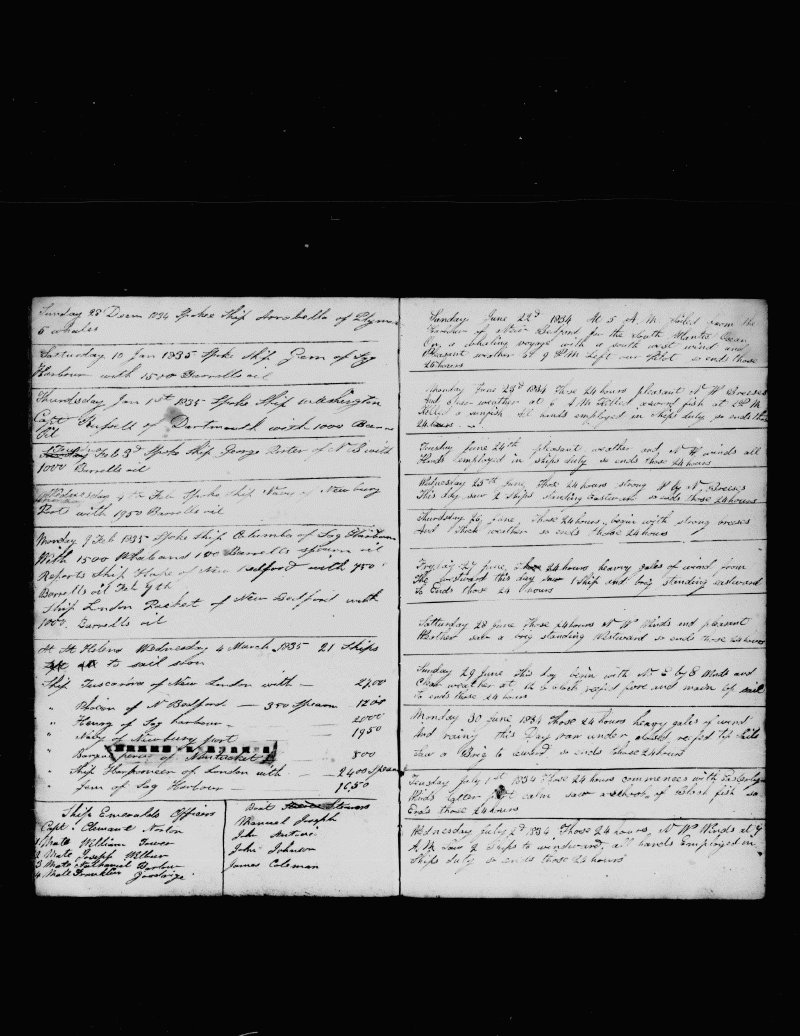 Sunday 28 Decm 1834 Spoke Ship Arrabella of
5 whales
Satturday 10 Jan 1835 Spke Ship Gem of Sag
Harbour with 1500 Barrells oil
Thursday Jan 1st 1835 Spoke Ship Washington
Capt of Dartmouth with 1000
Oil
Feb 3d Spke Ship George Porter of N B with
1000 Barrells oil
4th Feb Spoke Ship Navy of Newbury
Port with 1950 Barrells oil
Monday 9 Feb 1835 Spoke Ship Columba of Sag Harbour
With 1500 Whale and 100 Barrells sperm oil
Reports Ship Hope of New Bedford with 750
Barrells oil Feb 4th
Ship London Packet of New Bedford with
1000 Barrells oil
At St Helena Wednesday 4 March 1835 21 Ships
to sail soon
Ship Tuscarora of New London with — 2700
" of N Bedford — 350 Sperm 1200
" Henry of Sag harbour — 2000
" Navy of Newbury port 1950
" Barque of Nantucket 800
" Ship Harponeer of London with — 2400 Sperm
" Jem of Sag Harbour — 1650
Ship Emeralds Officers
Capt. Clemant Norton
1 Mate William Tower
2 Mate Joseph Wilber
3 Mate Nathaniel
4 Mate Franklin
Boat
Manuel Joseph
John Johnson
James Coleman
Sunday June 22d 1834 At 5 A.M. Sailed from the
Harbour of New Bedford for the South Atlantic Ocean
On a whaling voyage with a south west wind and
Pleasant weather at 9 P.M left our Pilot so ends those
24 hours
Monday June 23d 1834 Those 24 hours pleasant N W Breeses
And weather at 6 A M Killed fish at P.M
Killed a all hands employed in Ships duty so ends those
24 hours
Tuesday June 24th pleasant weather and N W winds all
Hands employed in ships duty so ends those 24 hours
Wednesday 25th June Those 24 hours strong W by N. Breeses
This day saw 2 Ships standing Eastward so ends those 24 hours
Thursday 26, June, Those 24 hours, begin with strong breses
And Thick weather so ends those 24 hours
Fryday 27 June, Those 24 hours heavy gales of wind from
The Eastward this day saw 1 Ship and brig standing eastward
So Ends those 24 hours
Satturday 28 June Those 24 hours N W Winds and pleasant
Weather saw a brig standing Westward so ends those 24 hours
Sunday 29 June this day begin with N. E by E Winds and
Clear weather at 12 o clock reefid fore and main top sail
So ends those 24 hours
Monday 30 June, 1834 Those 24 hours heavy gales of wind
And rainy this Day ran under closed reefed top sails
Saw a Brig to leward so ends those 24 hours
Tuesday July 1st 1834 Those 24 hours commences with Easterly
Winds latter part calm saw a school of Black fish so
Ends those 24 hours
Wednesday July 2d 1834. Those 24 hours, N W Winds at 7
A, M, Saw 2 Ships to windward; all hands Employed in
Ships duty so ends those 24 hours